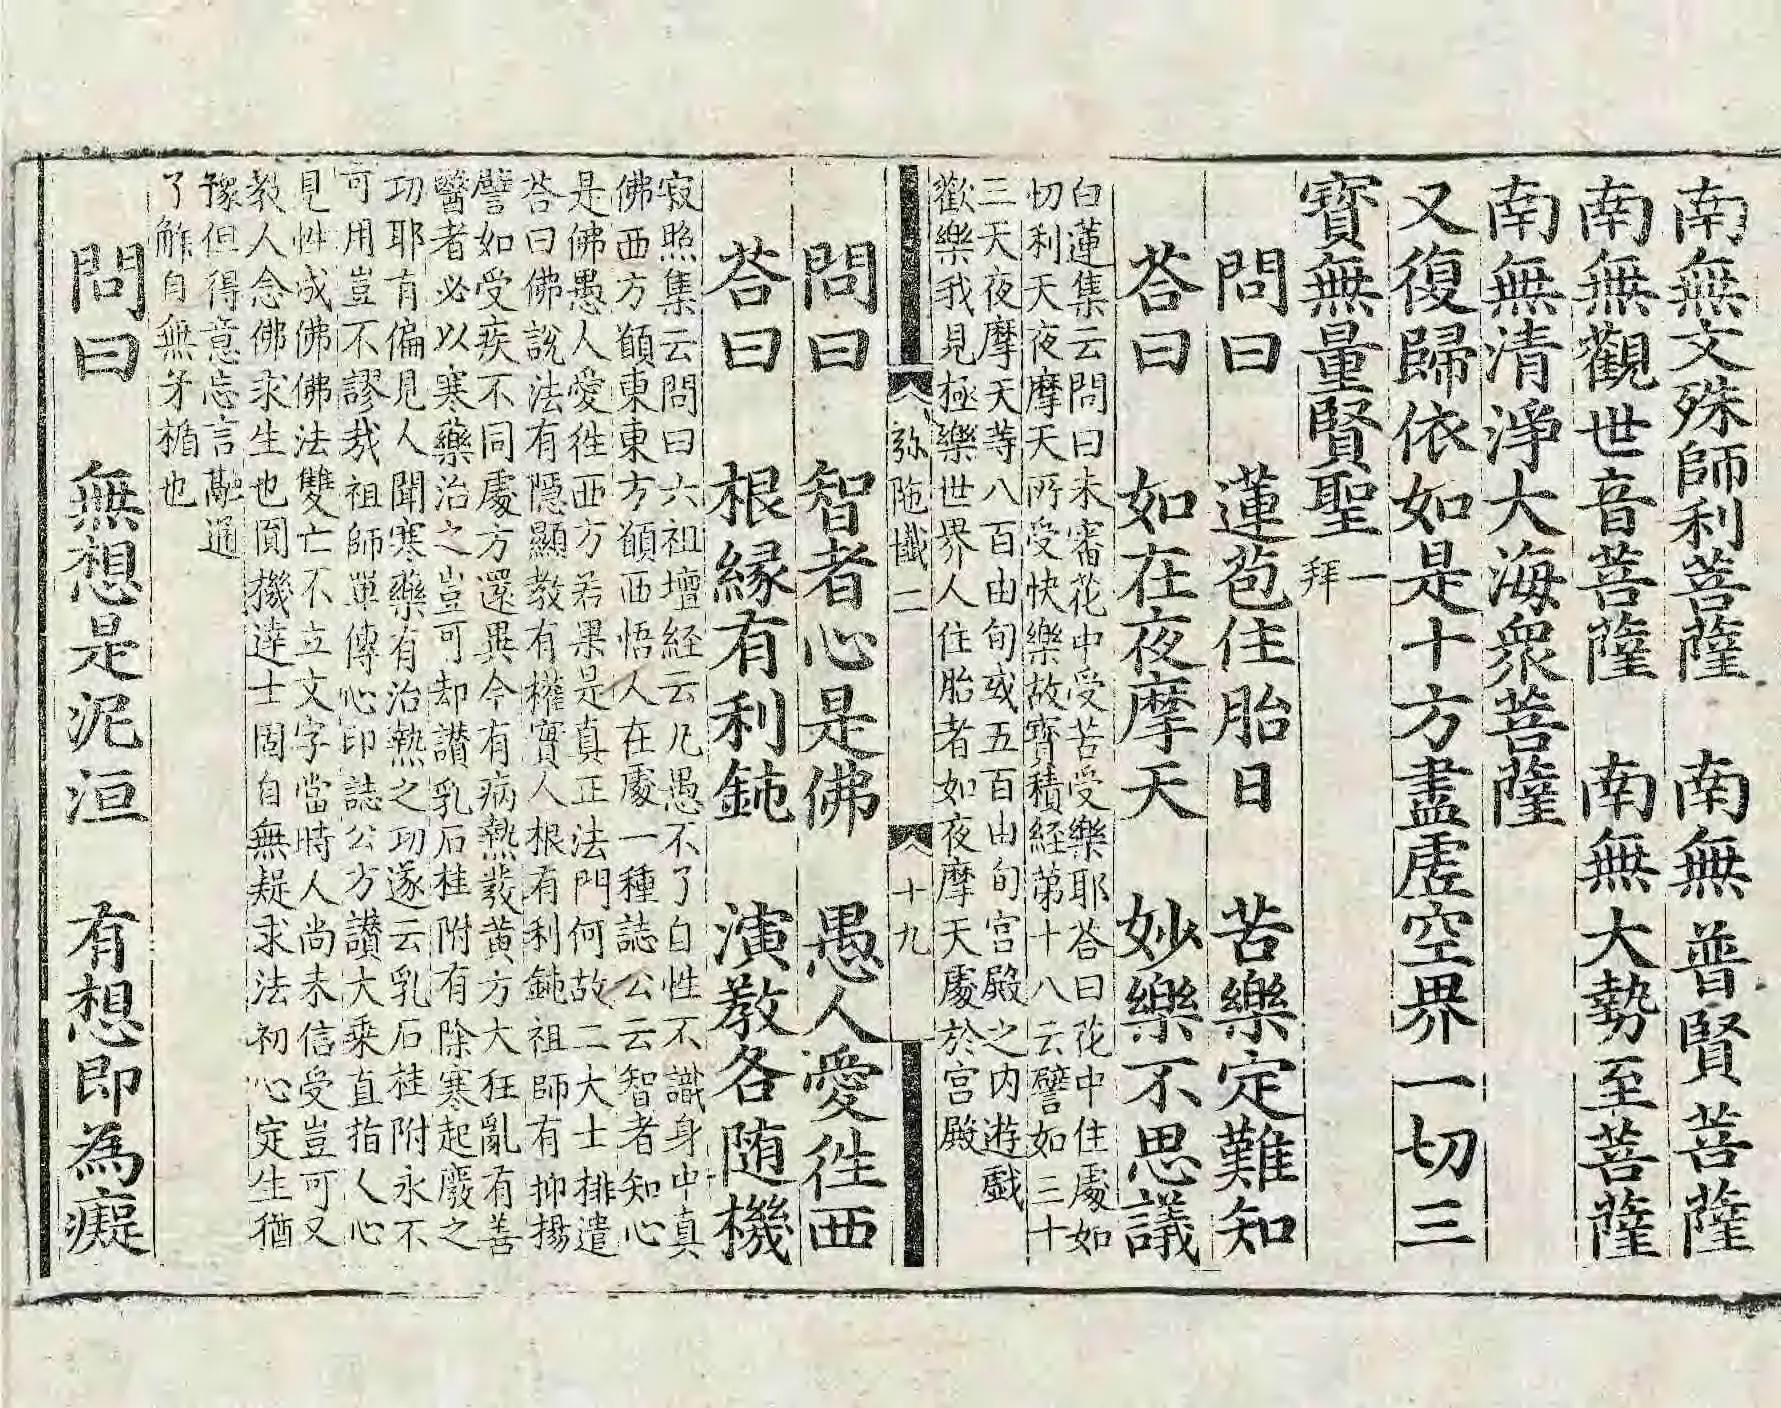 南無文殊師利菩薩　南無普賢菩薩
南無觀世音菩薩　南無大勢至菩薩
南無清淨大海衆菩薩
又復歸依如是十方盡虛空界一切三
寶無量賢聖 一拜
問曰　蓮苞住胎日　苦樂定難知
荅曰　如在夜摩天　妙樂不思議
白蓮集云問曰未審花中受苦受樂耶荅曰花中住處如
忉利天夜摩天所受快樂故寶積経第十八云譬如三十
三天夜摩天等八百由旬或五百由旬宮殿之内遊戲
歡樂我見極樂世界人住胎者如夜摩天處於宮殿
弥陁懺二　十九
問曰　智者心是佛　愚人愛徃西
荅曰　根縁有利鈍　演教各随機
寂照集云問曰六祖壇経云凡愚不了自性不識身中真
佛西方願東東方願西悟人在處一種誌公云智者知心
是佛愚人愛徃西方若果是真正法門何故二大士排遣
荅曰佛說法有隱顯教有權實人根有利鈍祖師有抑揚
譬如受疾不同處方還異今有病熱發黄方大狂亂有善
醫者必以寒藥治之豈可却讃乳石桂附有除寒起廢之
功耶有偏見人聞寒藥有治熱之功遂云乳石桂附永不
可用豈不謬㦲祖師單傳心印誌公方讃大乘直指人心
見性成佛佛法雙亡不立文字當時人尚未信受豈可又
教人念佛求生也圓機達士固自無疑求法初心定生猶
豫但得意忘言融通
了觧自無矛楯也
問曰　無想是泥洹　有想即為癡